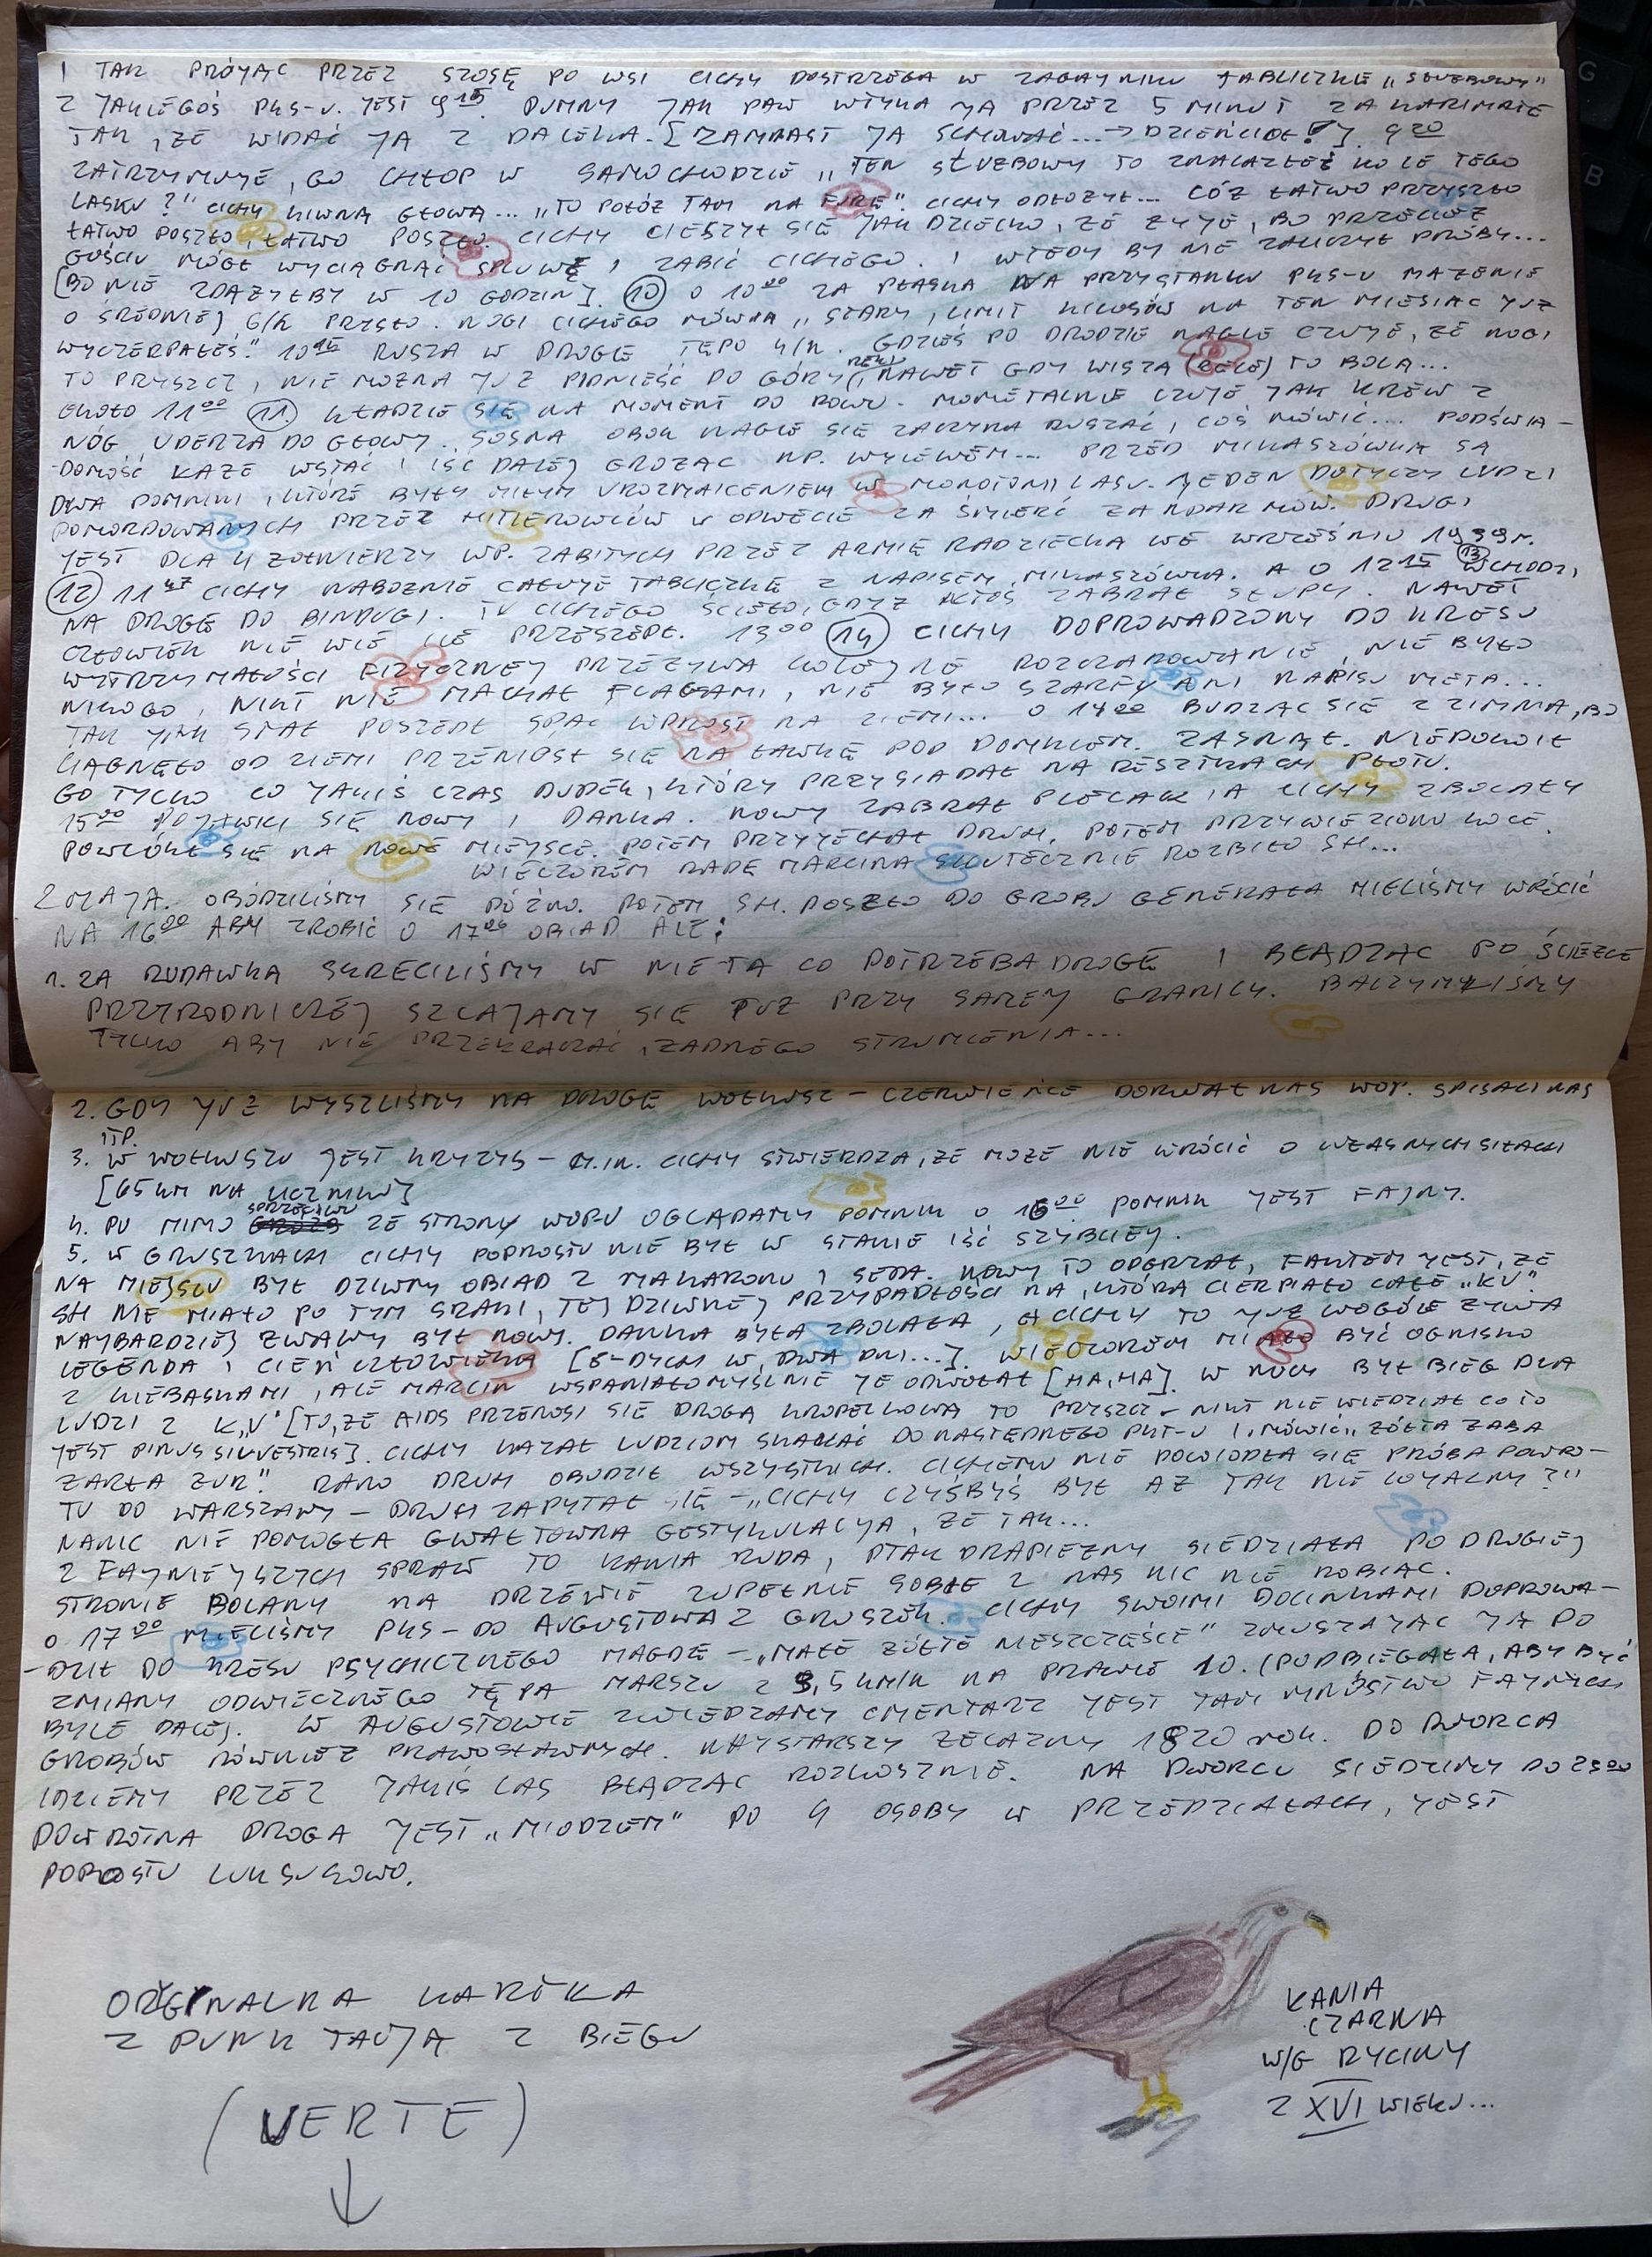 I TAK PRÓJĄC PRZEZ SZOSĘ PO WSI CICHY DOSTRZEGA W ZAGAJNIKU TABLICZKĘ „SŁUŻBOWY”
Z JAKIEGOŚ PKS-U. JEST 9¹⁵ DUMNY JAK PAW WTYKA JĄ PRZEZ 5 MINUT ZA KARIMATĘ
TAK, ŻE WIDAĆ JĄ Z DALEKA. [ZAMIAST JĄ SCHOWAĆ...→ 9²⁰
ZATRZYMUJE GO CHŁOP W SAMOCHODZIE „TEN SŁUŻBOWY TO ZNALAZŁEŚ KOŁO TEGO
LASKU?” CICHY KIWNĄ GŁOWĄ... „TO POŁÓŻ TAM NA FURĘ”. CICHY ODŁOŻYŁ... CÓŻ ŁATWO PRZYSZŁO
ŁATWO POSZŁO, ŁATWO POSZŁO. CICHY CIESZYŁ SIĘ JAK DZIECKO, ŻE ŻYJE, BO PRZECIEŻ
GOŚCIU MÓGŁ WYCIĄGNĄĆ SPLUWĘ I ZABIĆ CICHEGO. I WTEDY BY NIE ZALICZYŁ PRÓBY...
[BO NIE ZDĄŻYŁBY W 10 GODZIN]. (10) O 10⁰⁰ ZA PŁASKĄ NA PRZYSTANKU PKS-U MARZENIE
O ŚREDNIEJ 6/H PRYSŁO. NOGI CICHEGO MÓWIĄ „STARY, LIMIT KILOSÓW NA TEN MIESIĄC JUŻ
WYCZERPAŁEŚ.” 10¹⁵ RUSZA W DROGĘ TĘPO 4/H. GDZIEŚ PO DRODZE NAGLE CZUJE, ŻE NOGI
TO PRYSZCZ, NIE MOŻNA JUŻ PODNIEŚĆ DO GÓRY RĘKI, NAWET GDY WISZĄ (RĘCE) TO BOLĄ...
OKOŁO 11⁰⁰ (11) KŁADZIE SIĘ NA MOMENT DO ROWU. MOMĘTALNIE CZUJE JAK KREW Z
NÓG UDERZA DO GŁOWY. SOSNA OBOK NAGLE SIĘ ZACZYNA RUSZAĆ, COŚ MÓWIĆ... PODŚWIA-
-DOMOŚĆ KAŻE WSTAĆ I IŚĆ DALEJ GROŻĄC NP. WYLEWEM... PRZED MIKASZÓWKĄ SĄ
DWA POMNIKI, KTÓRE BYŁY MIŁYM UROZMAICENIEM W MONOTONII LASU. JEDEN DOTYCZY LUDZI
POMORDOWANYCH PRZEZ HITLEROWCÓW W ODWECIE ZA ŚMIERĆ ŻANDARMÓW. DRUGI
JEST DLA 4 ŻOŁNIERZY WP. ZABITYCH PRZEZ ARMIĘ RADZIECKĄ WE WRZEŚNIU 1939 r.
(12) 11⁴⁷ CICHY NABOŻNIE CAŁUJE TABLICZKĘ Z NAPISEM „MIKASZÓWKA. A O 12¹⁵ (13) WCHODZI
NA DROGĘ DO BINDUGI. TU CICHEGO ŚCIĘŁO, GDYŻ KTOŚ ZABRAŁ SŁUPY. NAWET
CZŁOWIEK NIE WIE ILE PRZESZEDŁ. 13⁰⁰ (14) CICHY DOPROWADZONY DO KRESU
WYTRZYMAŁOŚCI FIZYCZNEJ PRZEŻYWA KOLEJNE ROZCZAROWANIE, NIE BYŁO
NIKOGO, NIKT NIE MACHAŁ FLAGAMI, NIE BYŁO SZARFY ANI NAPISU META...
TAK JAK STAŁ POSZEDŁ SPAĆ WPROST NA ZIEMI... O 14⁰⁰ BUDZĄC SIĘ Z ZIMNA, BO
CIĄGNĘŁO OD ZIEMI PRZENIÓSŁ SIĘ NA ŁAWKĘ POD DOMKIEM. ZASNĄŁ. NIEPOKOIŁ
GO TYLKO CO JAKIŚ CZAS DUDEK, KTÓRY PRZYSIADAŁ NA RESZTKACH PŁOTU.
15⁰⁰ POJAWILI SIĘ NOWY I DANKA. NOWY ZABRAŁ PLECAK, A CICHY ZBOLAŁY
POWLÓKŁ SIĘ NA NOWE MIEJSCE. POTEM PRZYJECHAŁ DRUH, POTEM PRZYWIEZIONO KOCE.
WIECZOREM RADĘ MARCINA SKUTECZNIE ROZBIŁO SH...
2 MAJA. OBÓDZILIŚMY SIĘ PÓŹNO. POTEM SH. POSZŁO DO GROBU GENERAŁA MIELIŚMY WRÓCIĆ
NA 16⁰⁰ ABY ZROBIĆ O 17⁰⁰ OBIAD ALE:
1. ZA RUDAWKĄ SKRĘCILIŚMY W NIE TĄ CO POTRZEBA DROGĘ I BŁĄDZĄC PO ŚCIEŻCE
PRZYRODNICZEJ SZLAJAMY SIĘ TUŻ PRZY SAMEJ GRANICY. BACZYMYLIŚMY
TYLKO ABY NIE PRZEKRACZAĆ ŻADNEGO STRUMIENIA...
2. GDY JUŻ WYSZLIŚMY NA DROGĘ WOŁKUSZ – CZERWIEŃCE DORWAŁ NAS WOP. SPISALI NAS
ITP.
3. W WOŁKUSZU JEST KRYZYS – M.IN. CICHY STWIERDZA, ŻE MOŻE NIE WRÓCIĆ O WŁASNYCH SIŁACH
[65 KM NA LICZNIKU]
4. PO MIMO SPRZECIWU ZE STRONY WOPU OGLĄDAMY POMNIK O 16⁰⁰ POMNIK JEST FAJNY.
5. W GRUSZKACH CICHY POPROSTU NIE BYŁ W STANIE IŚĆ SZYBCIEJ.
NA MIEJSCU BYŁ DZIWNY OBIAD Z MAKARONU I SERA. NOWY TO ODGRZAŁ, FAKTEM JEST, ŻE
SH NIE MIAŁO PO TYM SRAKI, TEJ DZIWNEJ PRZYPADŁOŚCI NA KTÓRĄ CIERPIAŁO CAŁE „KV”
NAJBARDZIEJ ŻWAWY BYŁ NOWY. DANKA BYŁA ZBOLAŁA, A CICHY TO JUŻ WOGÓLE ŻYWA
LEGENDA I CIEŃ CZŁOWIEKA [8-DYCH W DWA DNI...]. WIECZOREM MIAŁO BYĆ OGNISKO
Z KIEBASKAMI, ALE MARCIN WSPANIAŁOMYŚLNIE JE ODWOŁAŁ [HA, HA]. W NOCY BYŁ BIEG DLA
LUDZI Z K„V” [TO, ŻE AIDS PRZENOSI SIĘ DROGĄ KROPELKOWĄ TO PRYSZCZ – NIKT NIE WIEDZIAŁ CO TO
JEST PINUS SILVESTRIS]. CICHY KAZAŁ LUDZIOM SKAKAĆ DO NASTĘPNEGO PKT-U I MÓWIĆ „ŻÓŁTA ŻABA
ŻARŁA ŻUR”. RANO DRUH OBUDZIŁ WSZYSTKICH. CICHEMU NIE POWIODŁA SIĘ PRÓBA POWRO-
TU DO WARSZAWY – DRUH ZAPYTAŁ SIĘ – „CICHY CZYŚBYŚ BYŁ AŻ TAK NIE LOYALNY?”
NANIC NIE POMOGŁA GWAŁTOWNA GESTYKULACJA, ŻE TAK...
Z FAJNIEJSZYCH SPRAW TO KANIA RUDA, PTAK DRAPIEŻNY SIEDZIAŁA PO DRUGIEJ
STRONIE POLANY NA DRZEWIE ZUPEŁNIE SOBIE Z NAS NIC NIE ROBIĄC.
O 17⁰⁰ MIELIŚMY PKS – DO AUGUSTOWA Z GRUSZEK. CICHY SWOIMI DOCINKAMI DOPROWA-
-DZIŁ DO KRESU PSYCHICZNEGO MAGDĘ – „MAŁE ŻÓŁTE NIESZCZĘŚCIE” ZMUSZAJĄC JĄ DO
ZMIANY ODWIECZNEGO TĘPA MARSZU Z 3,5 KM/H NA PRAWIE 10. (PODBIEGAŁA, ABY BYĆ
BYLE DALEJ. W AUGUSTOWIE ZWIEDZAMY CMENTARZ JEST TAM MNÓSTWO FAJNYCH
GROBÓW RÓWNIEŻ PRAWOSŁAWNYCH. NAJSTARSZY ŻELAZNY 1820 rok. DO DWORCA
IDZIEMY PRZEZ JAKIŚ LAS BŁĄDZĄC ROZKOSZNIE. NA DWORCU SIEDZIMY DO 23⁰⁰
POWROTNA DROGA JEST „MIODZEM” PO 4 OSOBY W PRZEDZIAŁACH, JEST
POROSTU LUKSUSOWO.
ORYGINALNA KARTKA
Z PUNKTACJĄ Z BIEGU
(VERTE)
↓
KANIA
CZARNA
W/G RYCINY
Z XVI WIEKU...